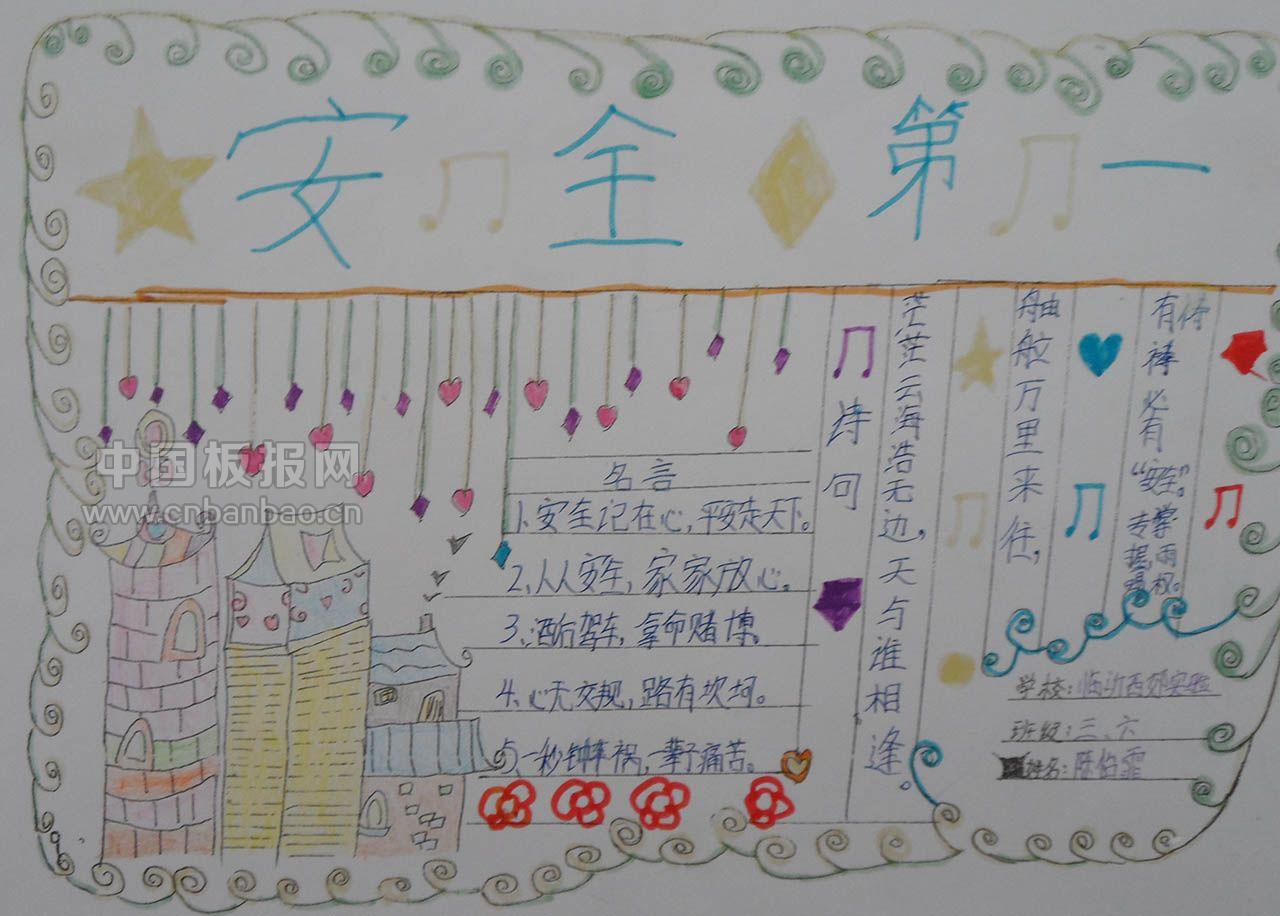 安全第一
中国板报网
www.cnbanbao.cn
名言
1、安全记在心，平安走天下。
2、人人安全，家家放心。
3、酒后驾车，拿命赌博。
4、心无交规，路有坎坷。
5、一秒钟车祸，一辈子痛苦。
诗句
茫茫云海浩无边，天与谁相逢。
舳舷万里来往，
有侍祷必有
“安全”。
专掌
握雨
权。
学校：临汾西郊实验
班级：三、六
姓名：陈怡霏